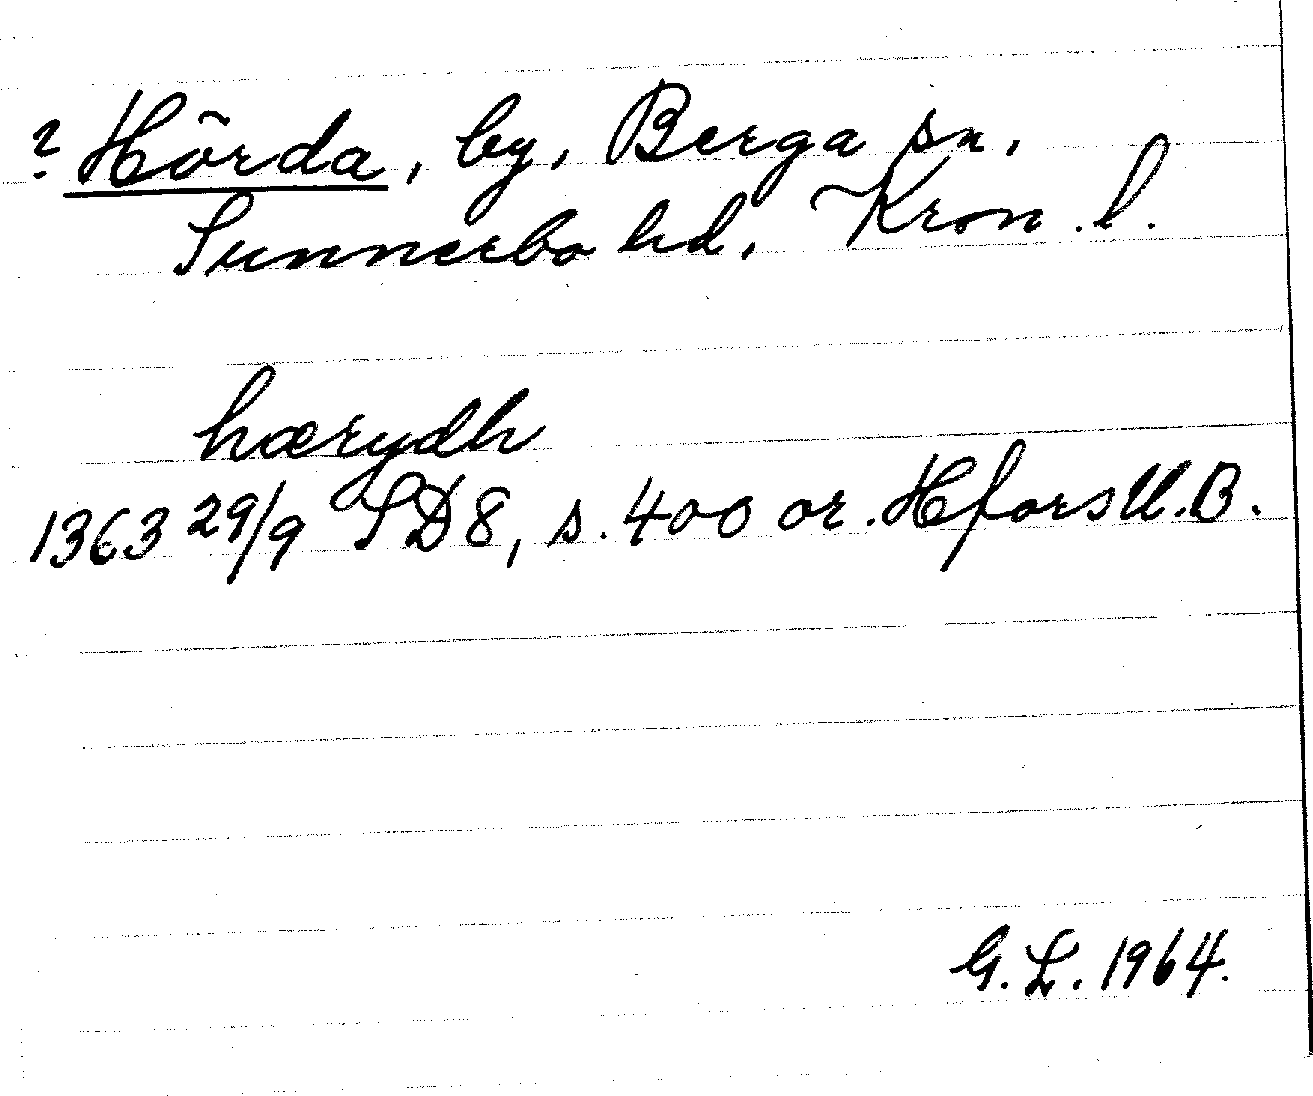 ? Hörda, by, Berga sn,
Sunnerbo hd, Kron. l.
hærydh
1363 29/9 SD 8, s. 400 or. Hfors U.B.
G. L. 1964.